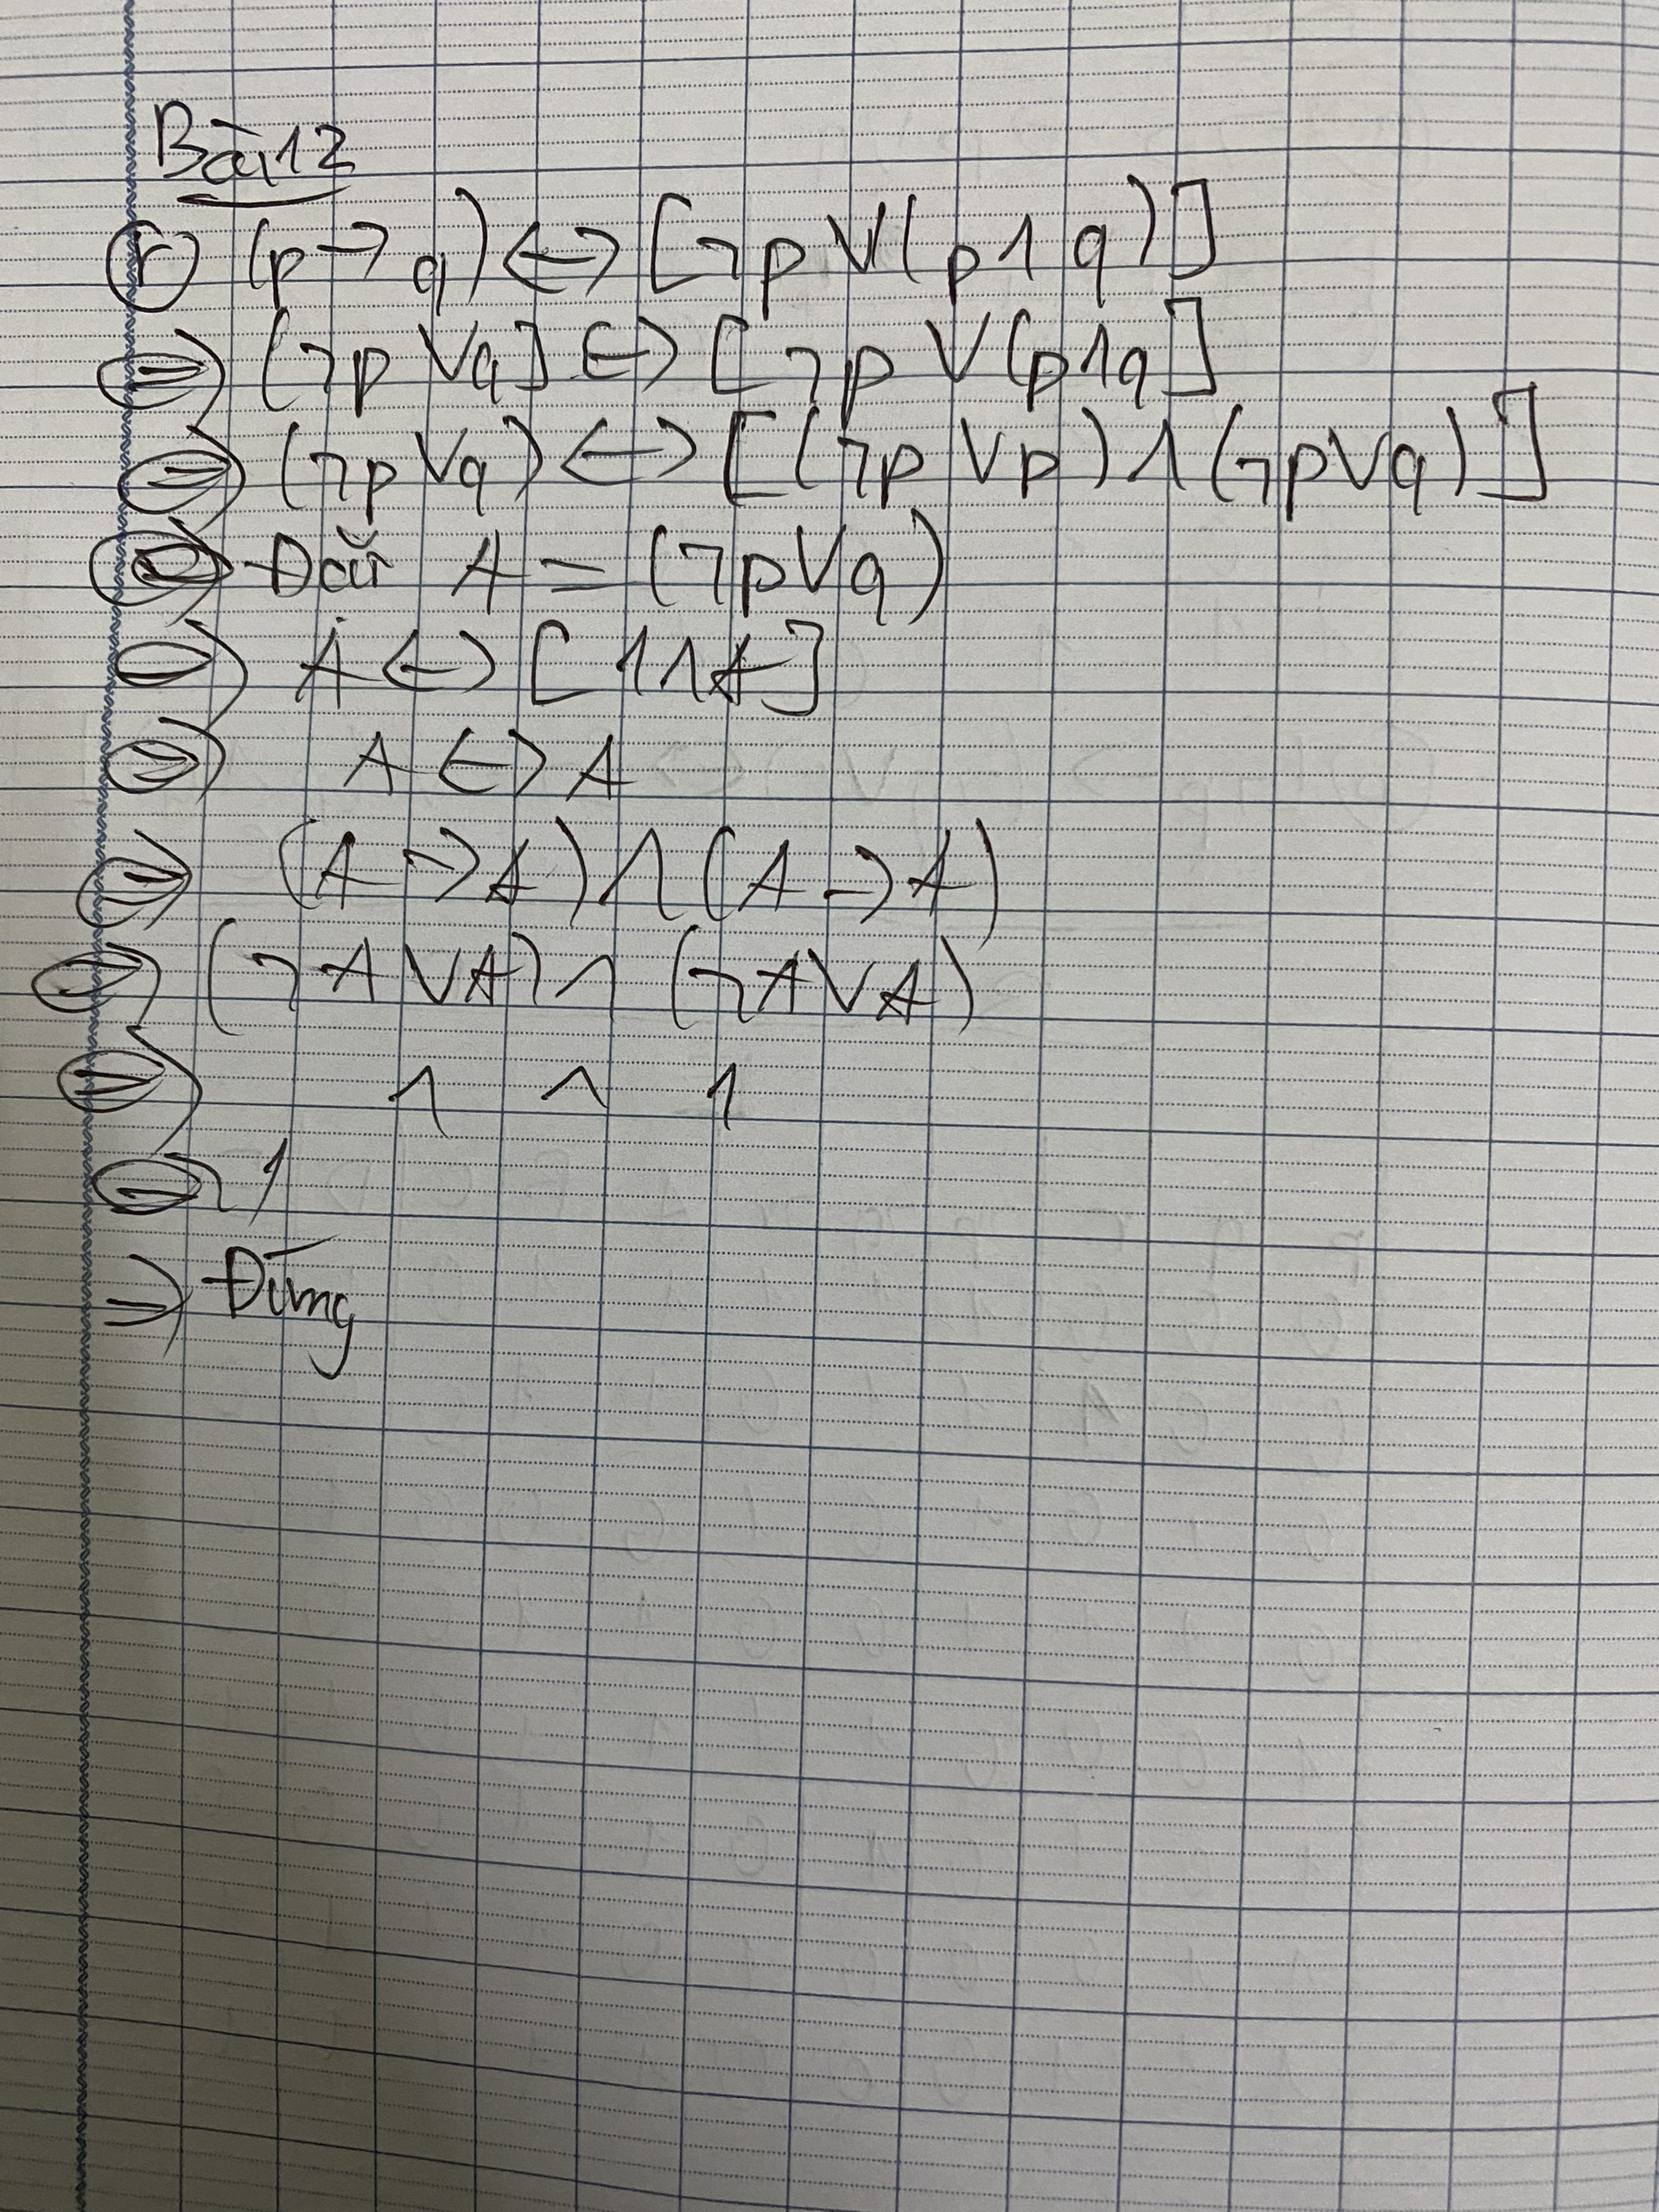 Bài 12
(r) (p → q) ↔ [¬p ∨ (p ∧ q)]
⇔ (¬p ∨ q] ↔ [¬p ∨ (p ∧ q]
⇔ (¬p ∨ q) ↔ [(¬p ∨ p) ∧ (¬p ∨ q)]
Đặt A = (¬p ∨ q)
⇔ A ↔ [1 ∧ A]
⇔ A ↔ A
⇔ (A → A) ∧ (A → A)
⇔ (¬A ∨ A) ∧ (¬A ∨ A)
⇔ 1 ∧ 1
⇔ 1
⇒ Đúng